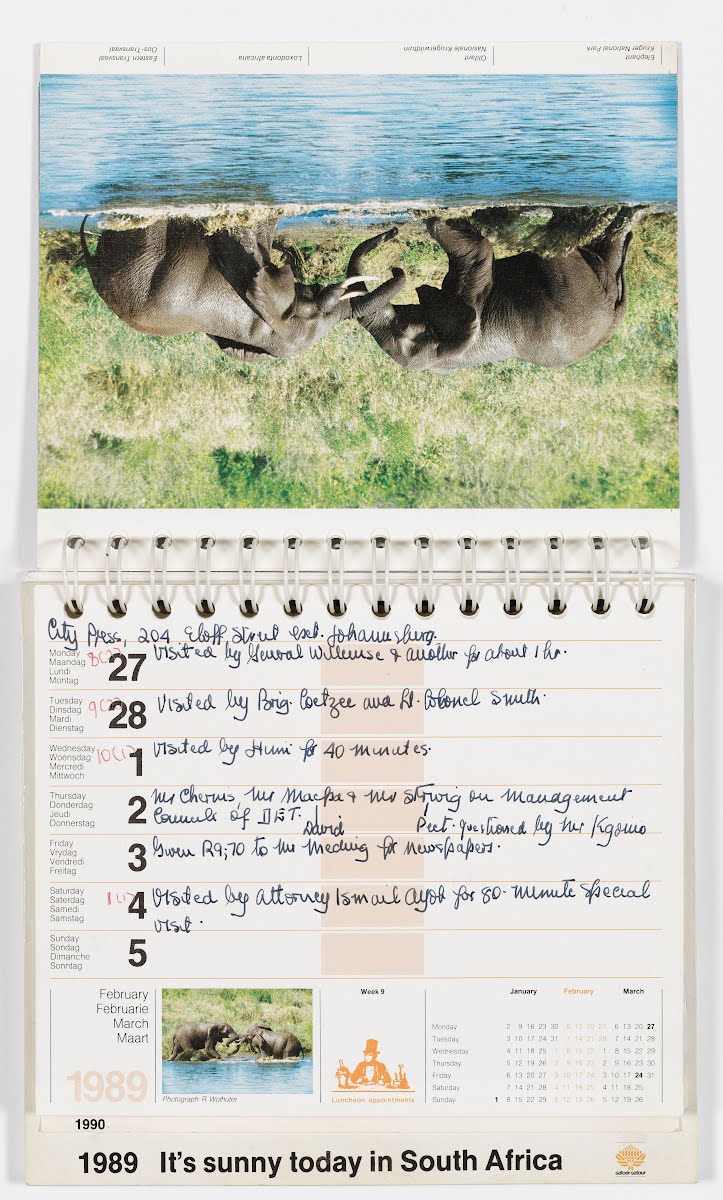 Eastern Transvaal
Oos-Transvaal
Loxodonta africana
Nasionale Krugerwildtuin
Olifant
Kruger National Park
Elephant
City Press, 204 Eloff Street ext. Johannesburg.
Monday
Maandag
Lundi
Montag
27 Visited by General Willemse & another for about 1 hr.
Tuesday
Dinsdag
Mardi
Dienstag
28 Visited by Brig. Coetzee and Lt. Colonel Smith.
Wednesday
Woensdag
Mercredi
Mittwoch
1 Visited by Huni for 40 minutes.
Thursday
Donderdag
Jeudi
Donnerstag
2 Mr Mr & Mr on Management
Councils of DET.
David questioned by Mr
Friday
Vrydag
Vendredi
Freitag
3 Given R9,70 to Mr for newspapers.
Saturday
Saterdag
Samedi
Samstag
4 Visited by attorney Ismail Ayob for 80 minute special
visit.
Sunday
Sondag
Dimanche
Sonntag
5
February
Februarie
March
Maart
1989
Photograph: R Wolhuter
Week 9
Luncheon appointments
January February March
Monday 2 9 16 23 30 6 13 20 27 6 13 20 27
Tuesday 3 10 17 24 31 7 14 21 28 7 14 21 28
Wednesday 4 11 18 25 1 8 15 22 1 8 15 22 29
Thursday 5 12 19 26 2 9 16 23 2 9 16 23 30
Friday 6 13 20 27 3 10 17 24 3 10 17 24 31
Saturday 7 14 21 28 4 11 18 25 4 11 18 25
Sunday 1 8 15 22 29 5 12 19 26 5 12 19 26
1990
1989 It's sunny today in South Africa
satoer·satour